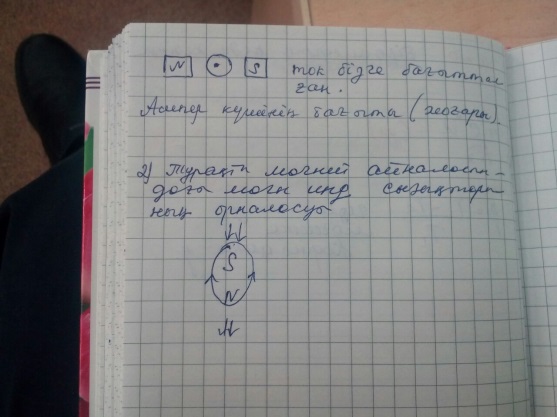 N S ток бізге бағыттал
ған.
Ампер күшінің бағыты (жоғары).
2) Тұрақты магнит айналасын-
дағы магн инд сызықтары-
ның орналасуы
S
N